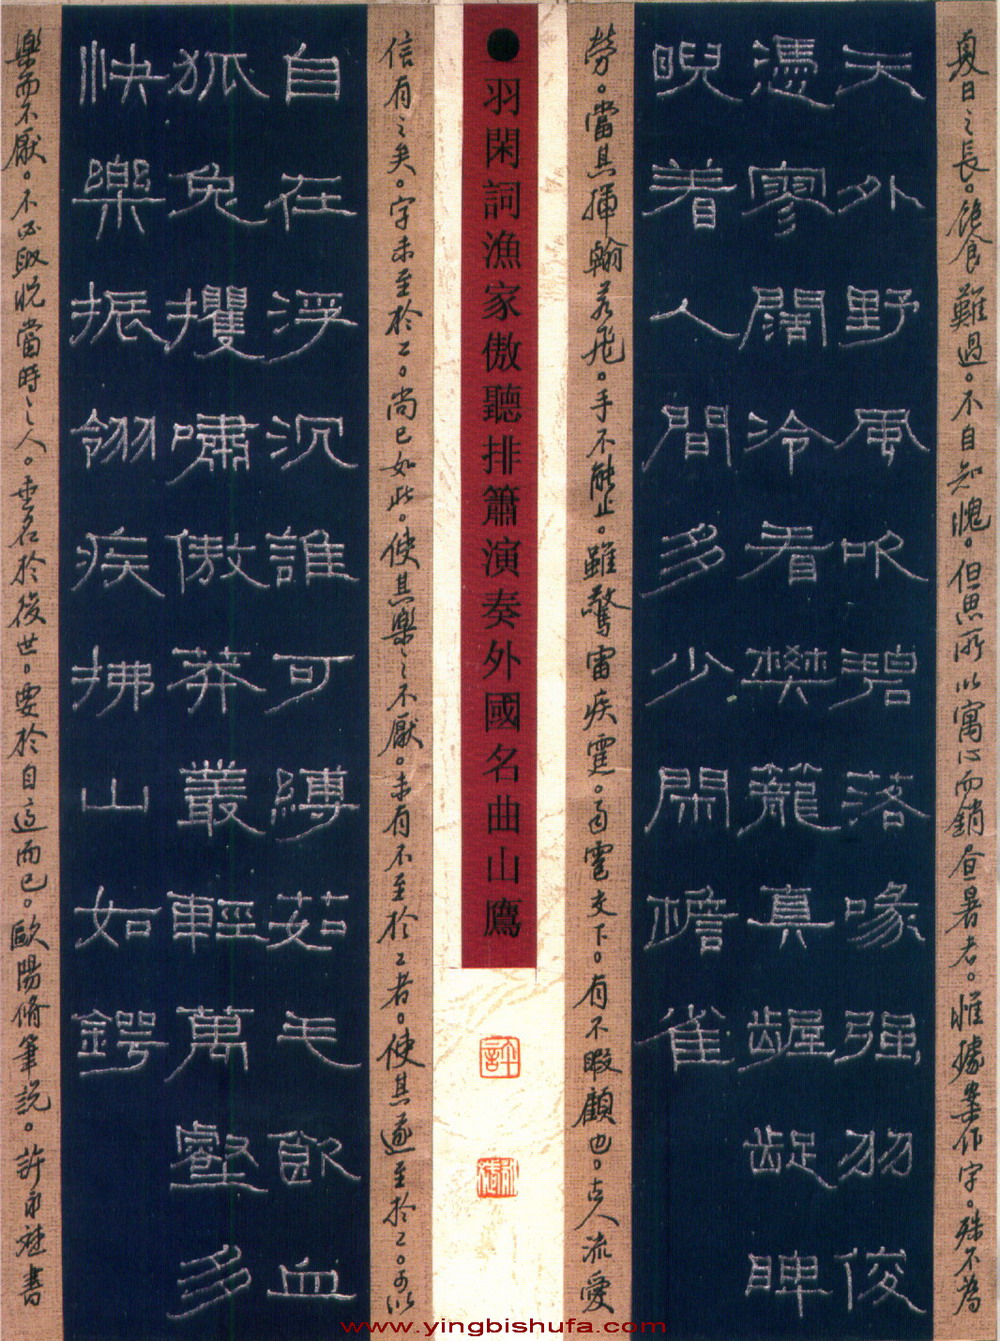 夏日之長。飽食難過。不自知愧。但思所以寓心而銷昼暑者。惟據案作字。殊不為
天外野風吹碧落喙强羽俊
憑寥闊冷看樊籠真齷齪睥
睨着人間多少閑檐雀
勞。當其揮翰若飛。手不能止。雖驚雷疾霆。雨雹交下。有不暇顧也。古人流愛
●羽閑詞漁家傲聽排簫演奏外國名曲山鷹
許
信有之矣。字未至於工。尚已如此。使其樂之不厭。未有不至於工者。使其遂至於工。可以
自在浮沉誰可縛茹毛飲血
狐兔攫嘯傲莽叢輕萬壑多
快樂振翎疾拂山如鍔
樂而不厭。不必取悅當時之人。垂名於後世。要於自適而已。歐陽脩筆說。許書
www.yingbishufa.com